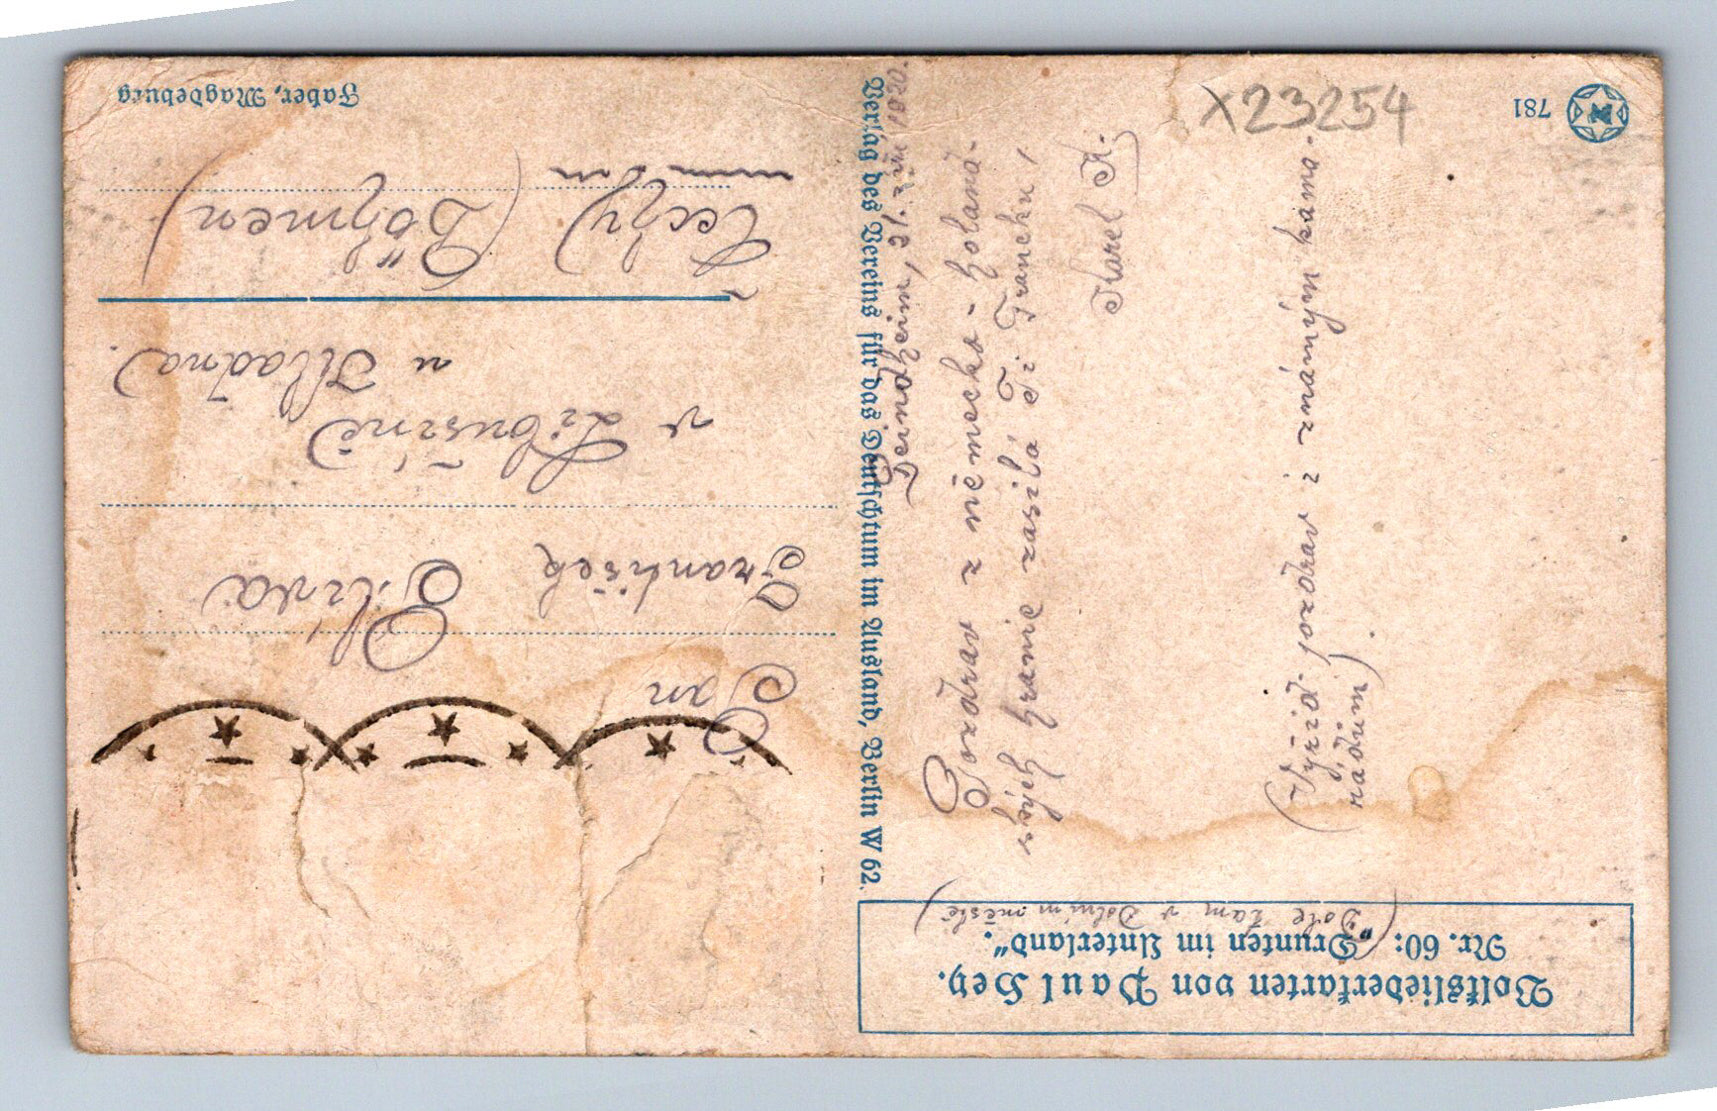 Volksliederkarten von Paul Hey.
Nr. 60: "Drunten im Unterland".
(Dole tam v Dolním městě)
Verlag des Vereins für das Deutschtum im Ausland, Berlin W 62.
Faber, Magdeburg
781
X23254
31. září 1920.
Pozdrav z německo-holand-
ských hranic zasílá Ti Francku,
Karel A.
(Vyřiď pozdrav i známým kama-
rádům)
Pan
František Slíva
v Libušíně
u Kladna.
Čechy (Böhmen)